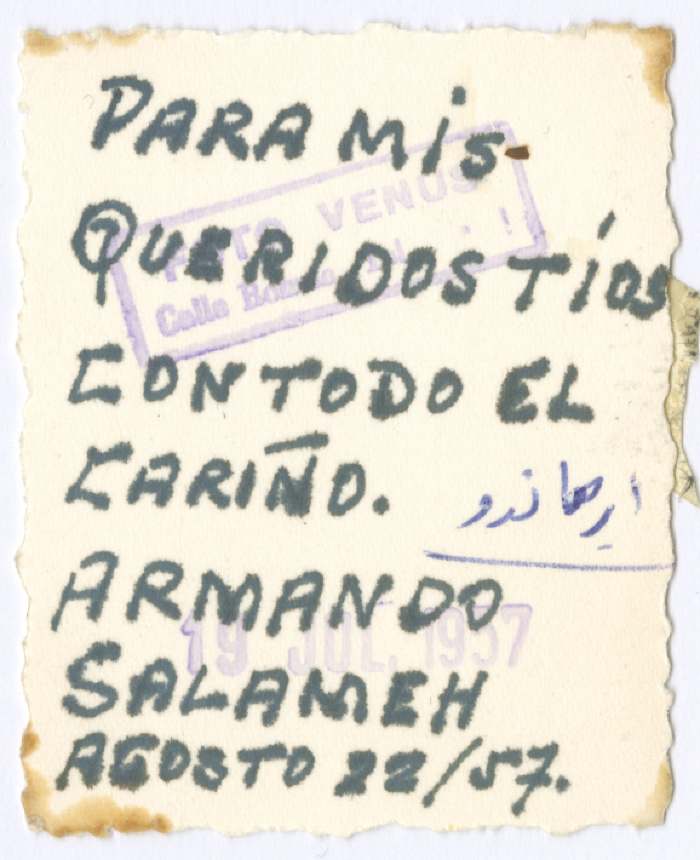 PARA MIS
QUERIDOS TÍOS
FOTO VENUS
Calle
CON TODO EL
CARIÑO.
ارماندو
ARMANDO
19 JUL. 1957
SALAMEH
AGOSTO 22/57.